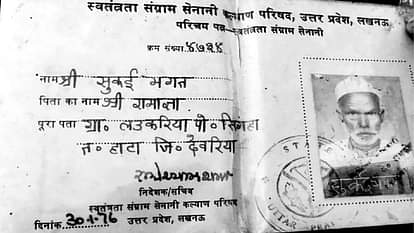 स्वतंत्रता संग्राम सेनानी कल्याण परिषद, उत्तर प्रदेश, लखनऊ
परिचय पत्र—स्वतंत्रता संग्राम सेनानी
क्रम संख्या ४७२४
नाम श्री सुकई भगत
पिता का नाम श्री रामाज्ञा
पूरा पता ग्रा. लउकरिया पो. सिगहा
त. हाटा जि. देवरिया
निदेशक/सचिव
स्वतंत्रता संग्राम सेनानी कल्याण परिषद
दिनांक 30-1-76 उत्तर प्रदेश, लखनऊ
STATE
UTTAR PRA